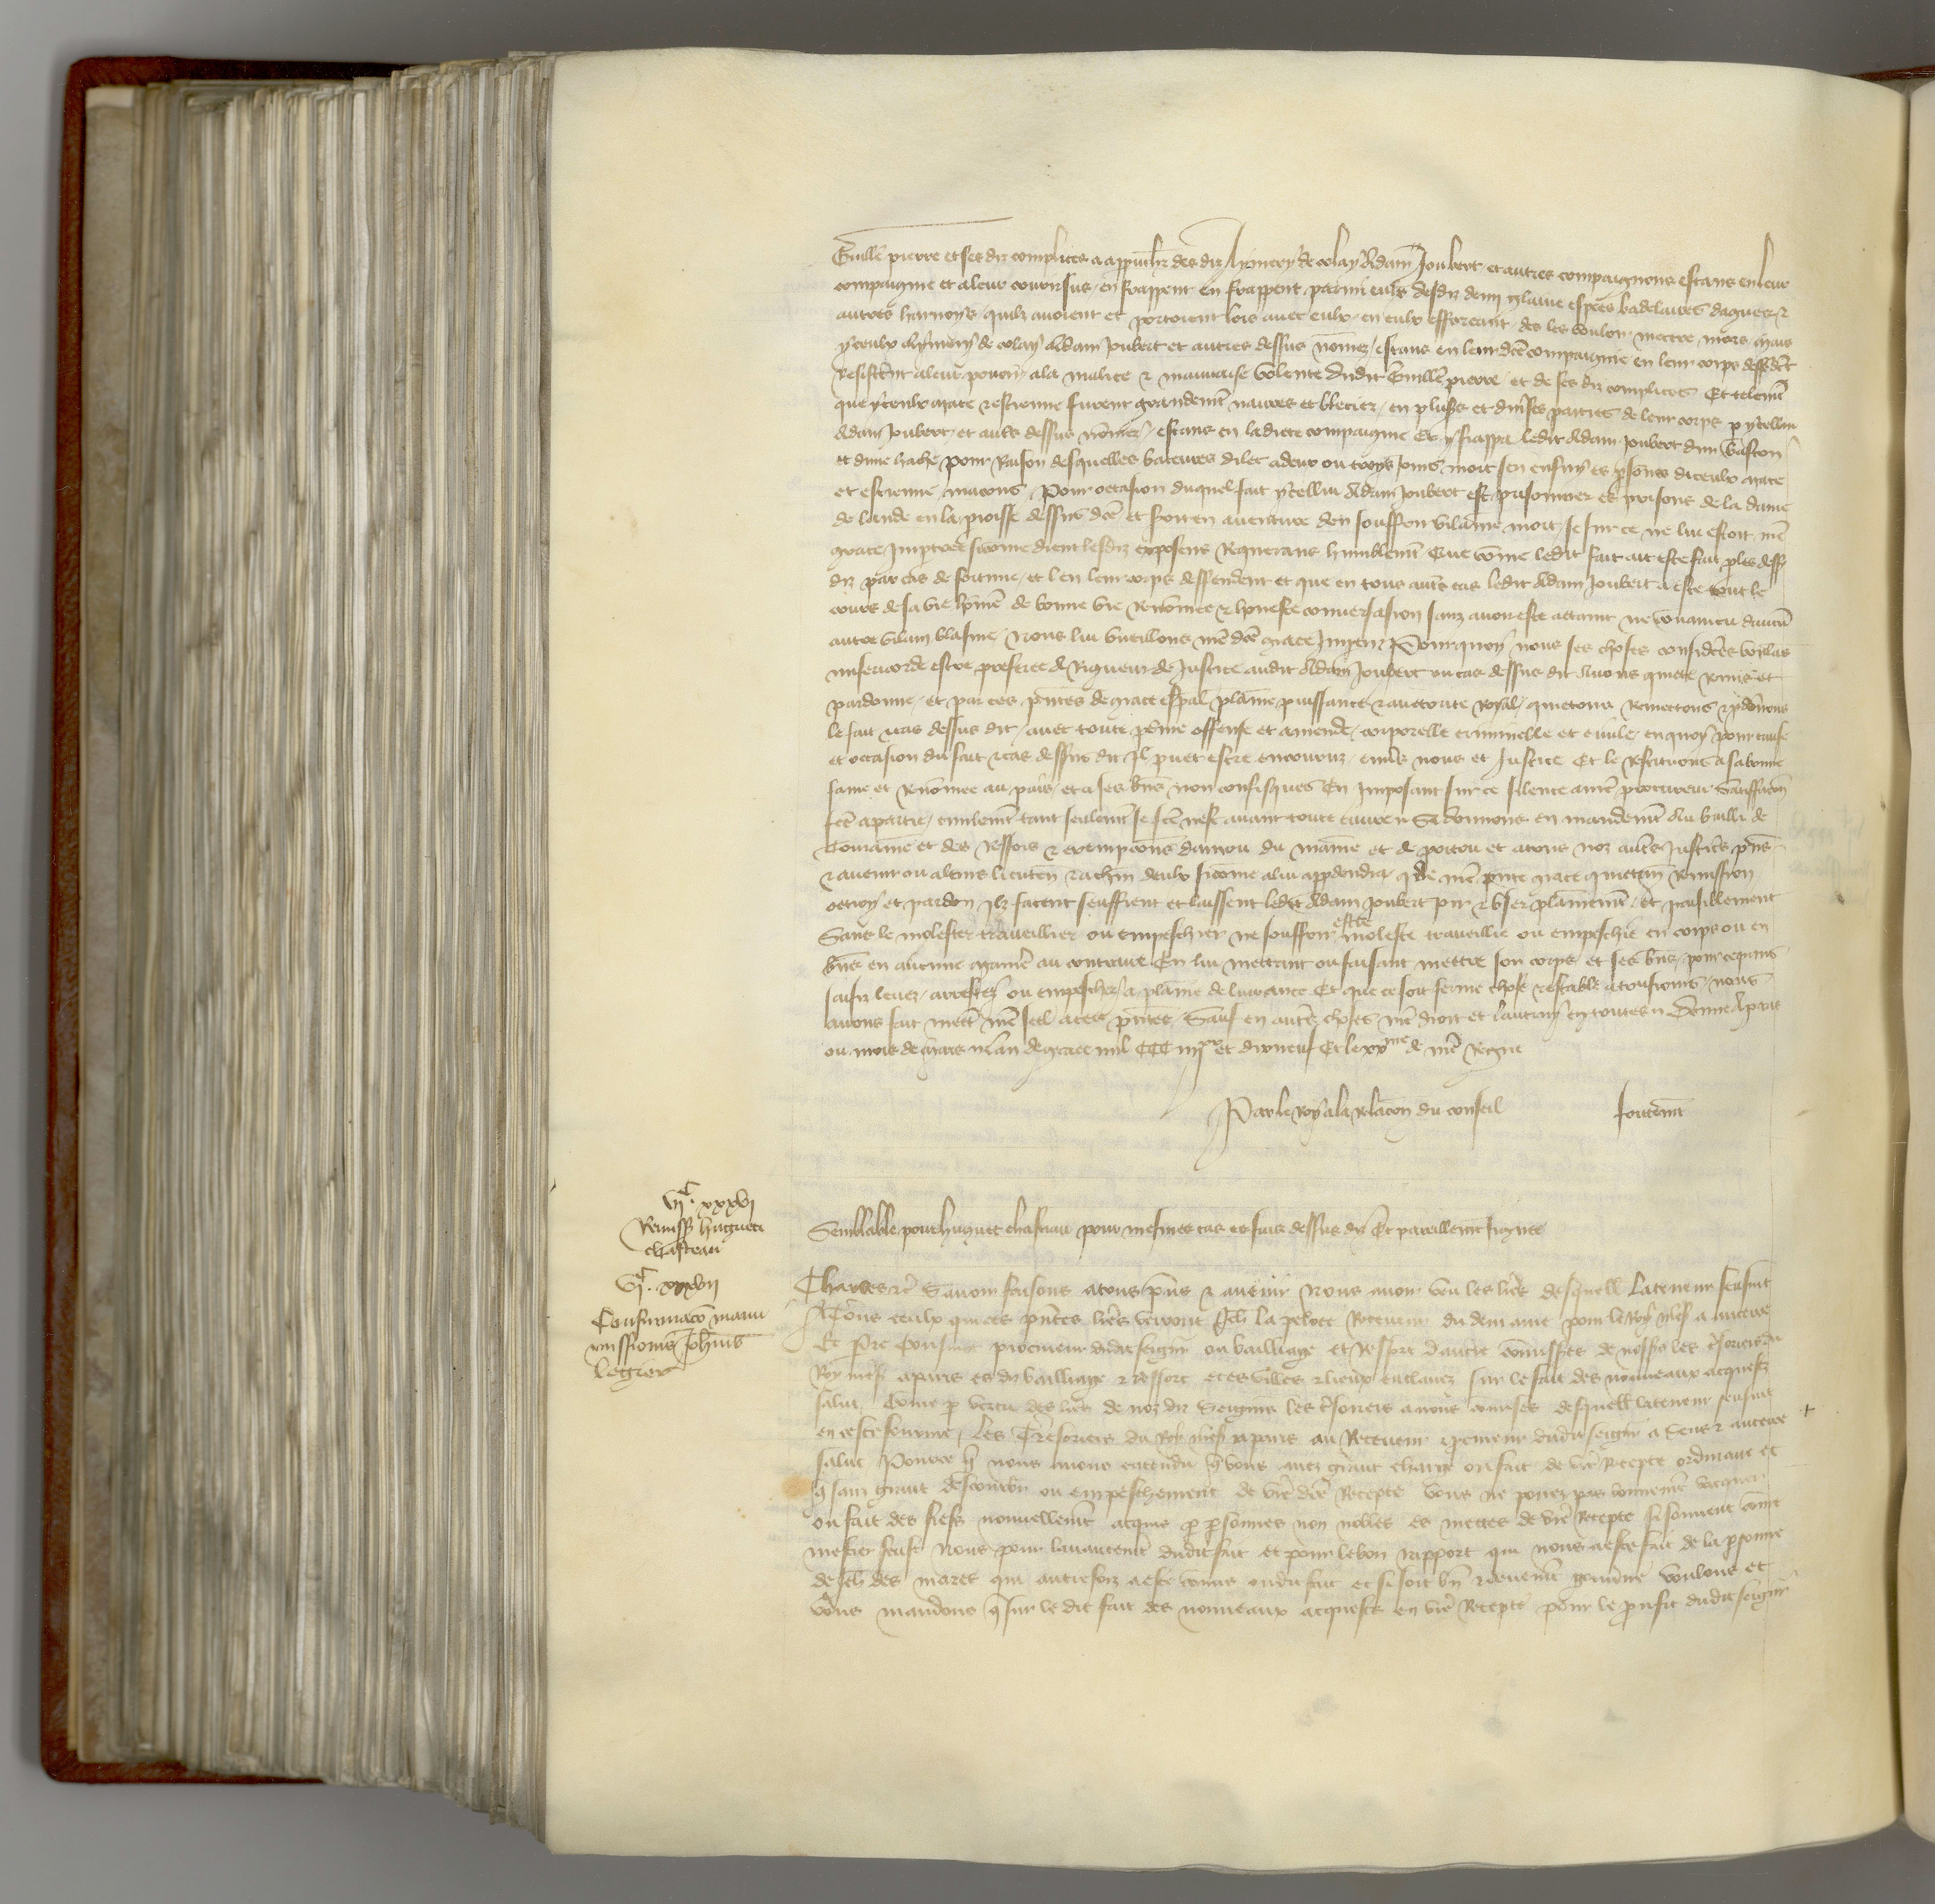 Guille pierre et ses diz complices a approuchier des diz Aymery de colay Adam Joubert et autres compaignons estans en leur
compaignie et a leur courir sus en frappent en frappent parmi eulx desdiz demj glaive espees badelaires dagues et
autres harnoys quilz avoient et portoient lors avec eulx en eulx efforcant des les vouloir mettre mors mais
yceulx Aymery de colay Adam Joubert et autres dessus nommez estans en leur dicte compaignie en leur corps deffendent
resistent a leur povoir a la malice et mauvaise volente dudit Guille pierre et de ses diz complices Et telemt
que yceulx mace et estienne furent grandemt navres et bleciez en plusrs et divses parties de leur corps p ycellui
Adam Joubert et autrs dessus nommez estans en ladicte compaignie Et y frappa ledit Adam Joubert dun baston
et dune hache Pour raison desquelles bateures dilec a deux ou troys jours mort sen ensuy es psonnes diceulx mace
et estienne macons Pour occasion duquel fait ycellui Adam Joubert est prisonnier es prisons de la dame
de lande en la proisse dessus dce et fort en aventure den souffrir vilaine mort se sur ce ne lui estoit nre
grace impetree sicome dient lesdiz exposens Requerans humblemt Que come ledit fait ait este fait p les dess
diz par cas de fortune et len leur corps deffendent et que en tous autrs cas ledit Adam Joubert a este tout le
cours de sa vie home de bonne vie renommee et honneste conversasion sanz avoir este attaint ne convaincu daucun
autre vilain blasme Nous lui vueillons nre dce grace impertir Pourquoy nous ces choses considerees voulans
misericorde estre preferee a rigueur de justice audit Adam Joubert ou cas dessus dit Avons quicte remis et
pardonne et par ces pntes de grace espal plaine puissance et auctorite royal quictons remettons et pdonnons
le fait et cas dessus dit avec toute peine offense et amende corporelle criminelle et civile en quoy pour cause
et occasion du fait et cas dessus dit il puet estre encouruz envrs nous et justice Et le restituons a sa bonne
fame et renommee au pais et a ses biens non confisques En imposant sur ce silence a nre procureur Satisffacion
fcte a partie civilemt tant seulemt se fcte nest avant toute euvre Si donnons en mandemt Au bailli de
Touraine et des ressors et exempcions danjou du maine et de poitou et a tous noz autrs justiciers pns
et avenir ou a leurs lieuten et a chun deulx sicome a lui appdendra que de nre pnte grace quictan remission
octroy et pardon ilz facent seuffrent et laissent ledit Adam Joubert joir et user plainemt et paisiblement
Sans le molester travaillier ou empeschier ne souffrir estre moleste travaillie ou empeschie en corps ou en
biens en aucune maniere au contraire En lui mettant ou faisant mettre son corps et ses biens pour ce prins
saisiz levez arrestez ou empeschez a plaine delivrance Et que ce soit ferme chose et estable a tousiours nous
avons fait mettre nre seel a ces pntes Sauf en autrs choses nre droit et lautruy en toutes Donne a paris
ou mois de mars Lan de grace mil CCC iiijxx et dix neuf Et le xxme de nre regne
Par le roy a la relacon du conseil
VIC. xxxvj
Remiss hugueti
chasteau
Semblable pour huguet chasteau pour mesmes cas et faiz dessus diz Et pareillemt signee
VIC. xxxvij
Confirmaco manu
missionis Johnis
legier
Charles etc Savoir faisons a tous pns et avenir Nous avoir veu les lres desquelles la teneur sensuit
A Tous ceulx qui ces pntes lres verront Jeh la pelote Receveur du demaine pour le Roy nres a aucerre
procureur dudit seigneur ou bailliage et ressort daucre commissres de noss les tresoriers du
Roy nres a paris es diz bailliage et ressort et es villes et lieux enclavez sur le fait des nouveaux acquestz
salut Come p vertu des lres de noz diz Seigneurs les tresoriers a nous comises desquell la teneur sensuit
en ceste fourme Les Tresoriers du Roy nres a paris au Receveur et pcureur dudit seigneur a Sens et aucerre
salut Pource que nous avons entendu que vous avez grant charge ou fait de vre recepte ordinaire et
que sanz grant destourbr ou empeschement de vre dce recepte vous ne povez pas bonnemt vacquer
ou fait des fiefs nouvellemt acquis p psonnes non nobles es mettes de vre recepte si souvent comme
mestier feust Nous pour lavancemt dudit fait et pour le bon rapport qui nous a este fait de la psonne
de Jeh des mares qui autrefoiz a este commis oudit fait et si soit bn et deuemt gouverne voulons et
vous mandons que sur le dit fait des nouveaux acquests en vre recepte pour le proufit dudit seigneur